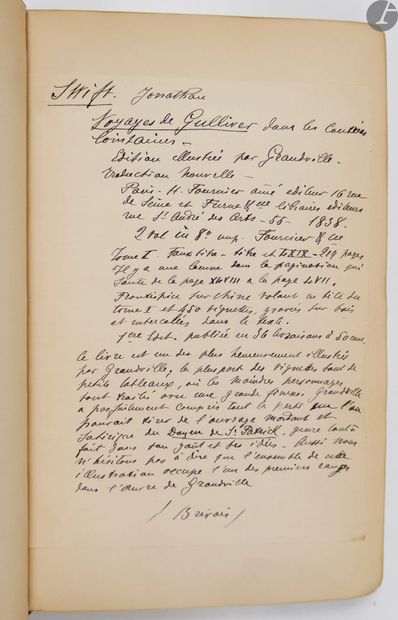 Swift. Jonathan
Voyages de Gulliver dans les Contrées
lointaines –
Edition illustrée par Grandville.
Traduction Nouvelle –
Paris – H. Fournier ainé editeur 16 rue
de Seine et Furne & Cie libraires editeurs
rue St André des Arts – 55 – 1838.
2 vol in 8° imp. Fournier & Cie
Tome I. Faux titre – titre et LXIX – 279 pages
Il y a une lacune dans la pagination qui
saute de la page XLVIII a la page LVII.
Frontispice sur Chine volant en tête du
tome I et 450 vignettes gravées sur bois
et intercalées dans le texte.
1ere Edit. publiée en 36 livraisons à 50 cmes
Ce livre est un des plus heureusement illustrés
par Grandville, la plupart des vignettes sont de
petits tableaux, où les moindres personnages
sont traités avec une grande finesse. Grandville
a parfaitement compris tout le parti que l'on
pouvait tirer de l'ouvrage mordant et
satirique du Doyen de St. Patrick, genre tout à
fait dans son goût et ses idées – Aussi nous
n'hésitons pas à dire que l'ensemble de cette
illustration occupe l'un des premiers rangs
dans l'œuvre de Grandville
Brivois